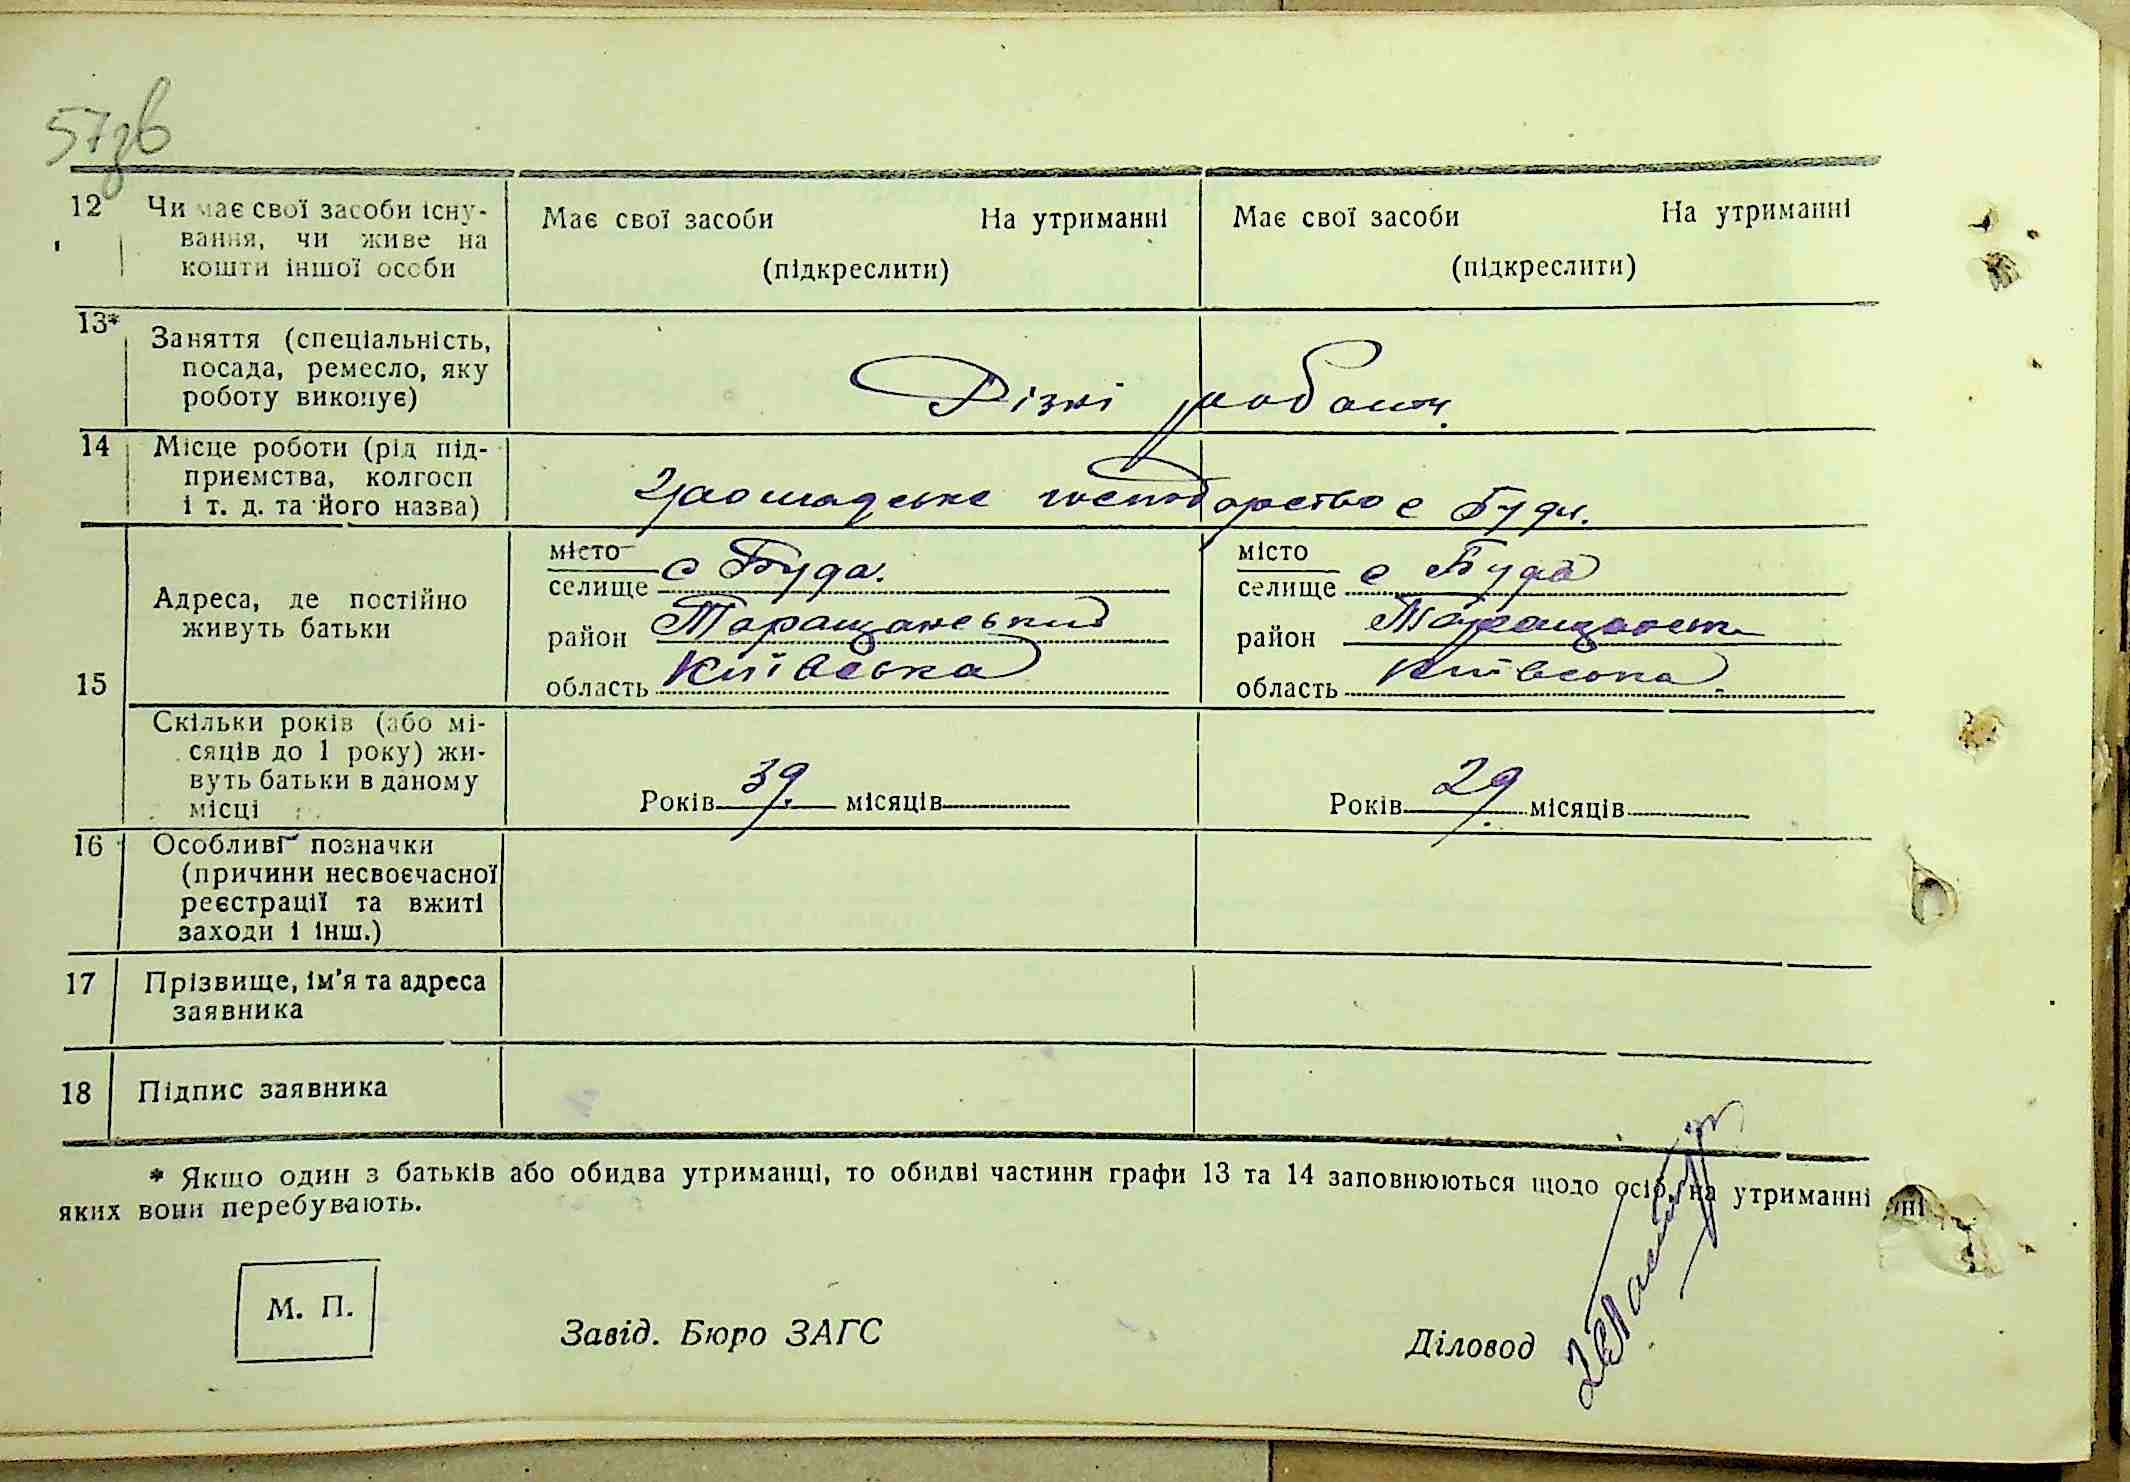 57зв
12 Чи має свої засоби існу-
вання, чи живе на
кошти іншої особи
Має свої засоби На утриманні
(підкреслити)
Має свої засоби На утриманні
(підкреслити)
13* Заняття (спеціальність,
посада, ремесло, яку
роботу виконує)
Різні роботи
14 Місце роботи (рід під-
приємства, колгосп
і т. д. та його назва)
Громадське господарство с Буди.
15
Адреса, де постійно
живуть батьки
місто
селище с Буда.
район Таращанський
область Київська
місто
селище с Буда
район Таращанськ
область Київська.
Скільки років (або мі-
сяців до 1 року) жи-
вуть батьки в даному
місці
Років 39. місяців
Років 29. місяців
16 Особливі позначки
(причини несвоєчасної
реєстрації та вжиті
заходи і інш.)
17 Прізвище, ім'я та адреса
заявника
18 Підпис заявника
* Якщо один з батьків або обидва утриманці, то обидві частини графи 13 та 14 заповнюються щодо осіб, на утриманні
яких вони перебувають.
М. П.
Завід. Бюро ЗАГС
Діловод